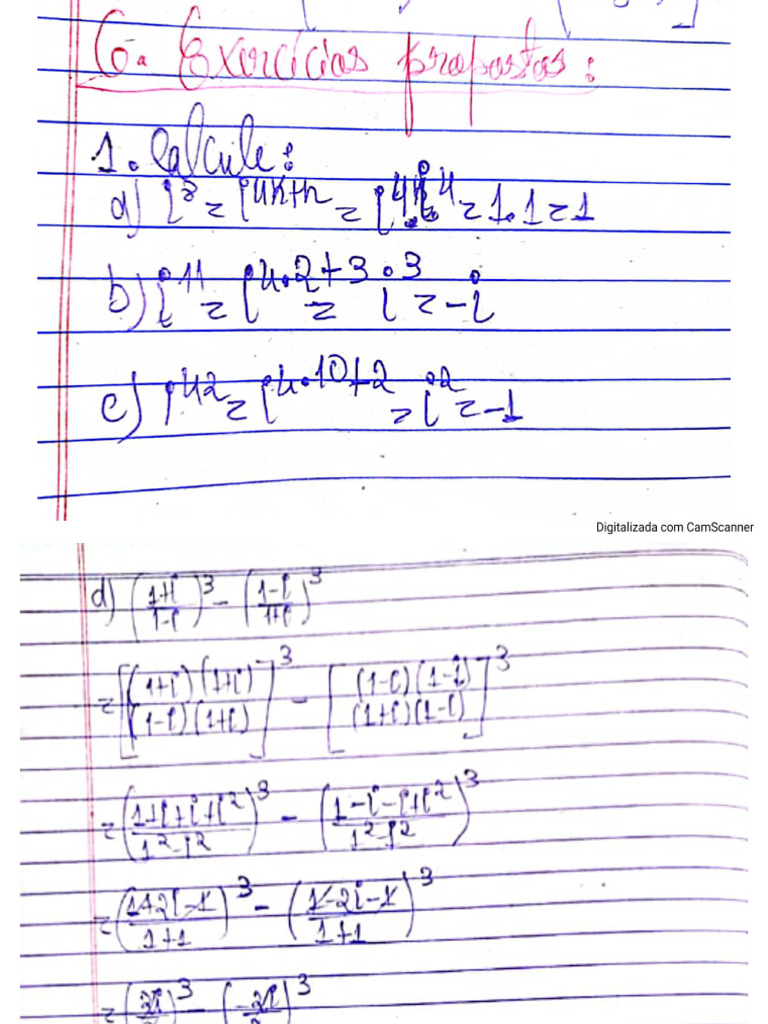 6. Exercícios propostos:
1. Calcule:
a) i⁸ = i^(4k+n) = i^(4k) . i⁴ = 1.1 = 1
b) i¹¹ = i^(4.2+3) = i³ = -i
c) i⁴² = i^(4.10+2) = i² = -1
Digitalizada com CamScanner
d) ((1+i)/(1-i))³ - ((1-i)/(1+i))³
= [((1+i)(1+i))/((1-i)(1+i))]³ - [((1-i)(1-i))/((1+i)(1-i))]³
= ((1+i+i+i²)/(1²-i²))³ - ((1-i-i+i²)/(1²-i²))³
= ((1+2i-1)/(1+1))³ - ((1-2i-1)/(1+1))³
= (2i/2)³ - (-2i/2)³